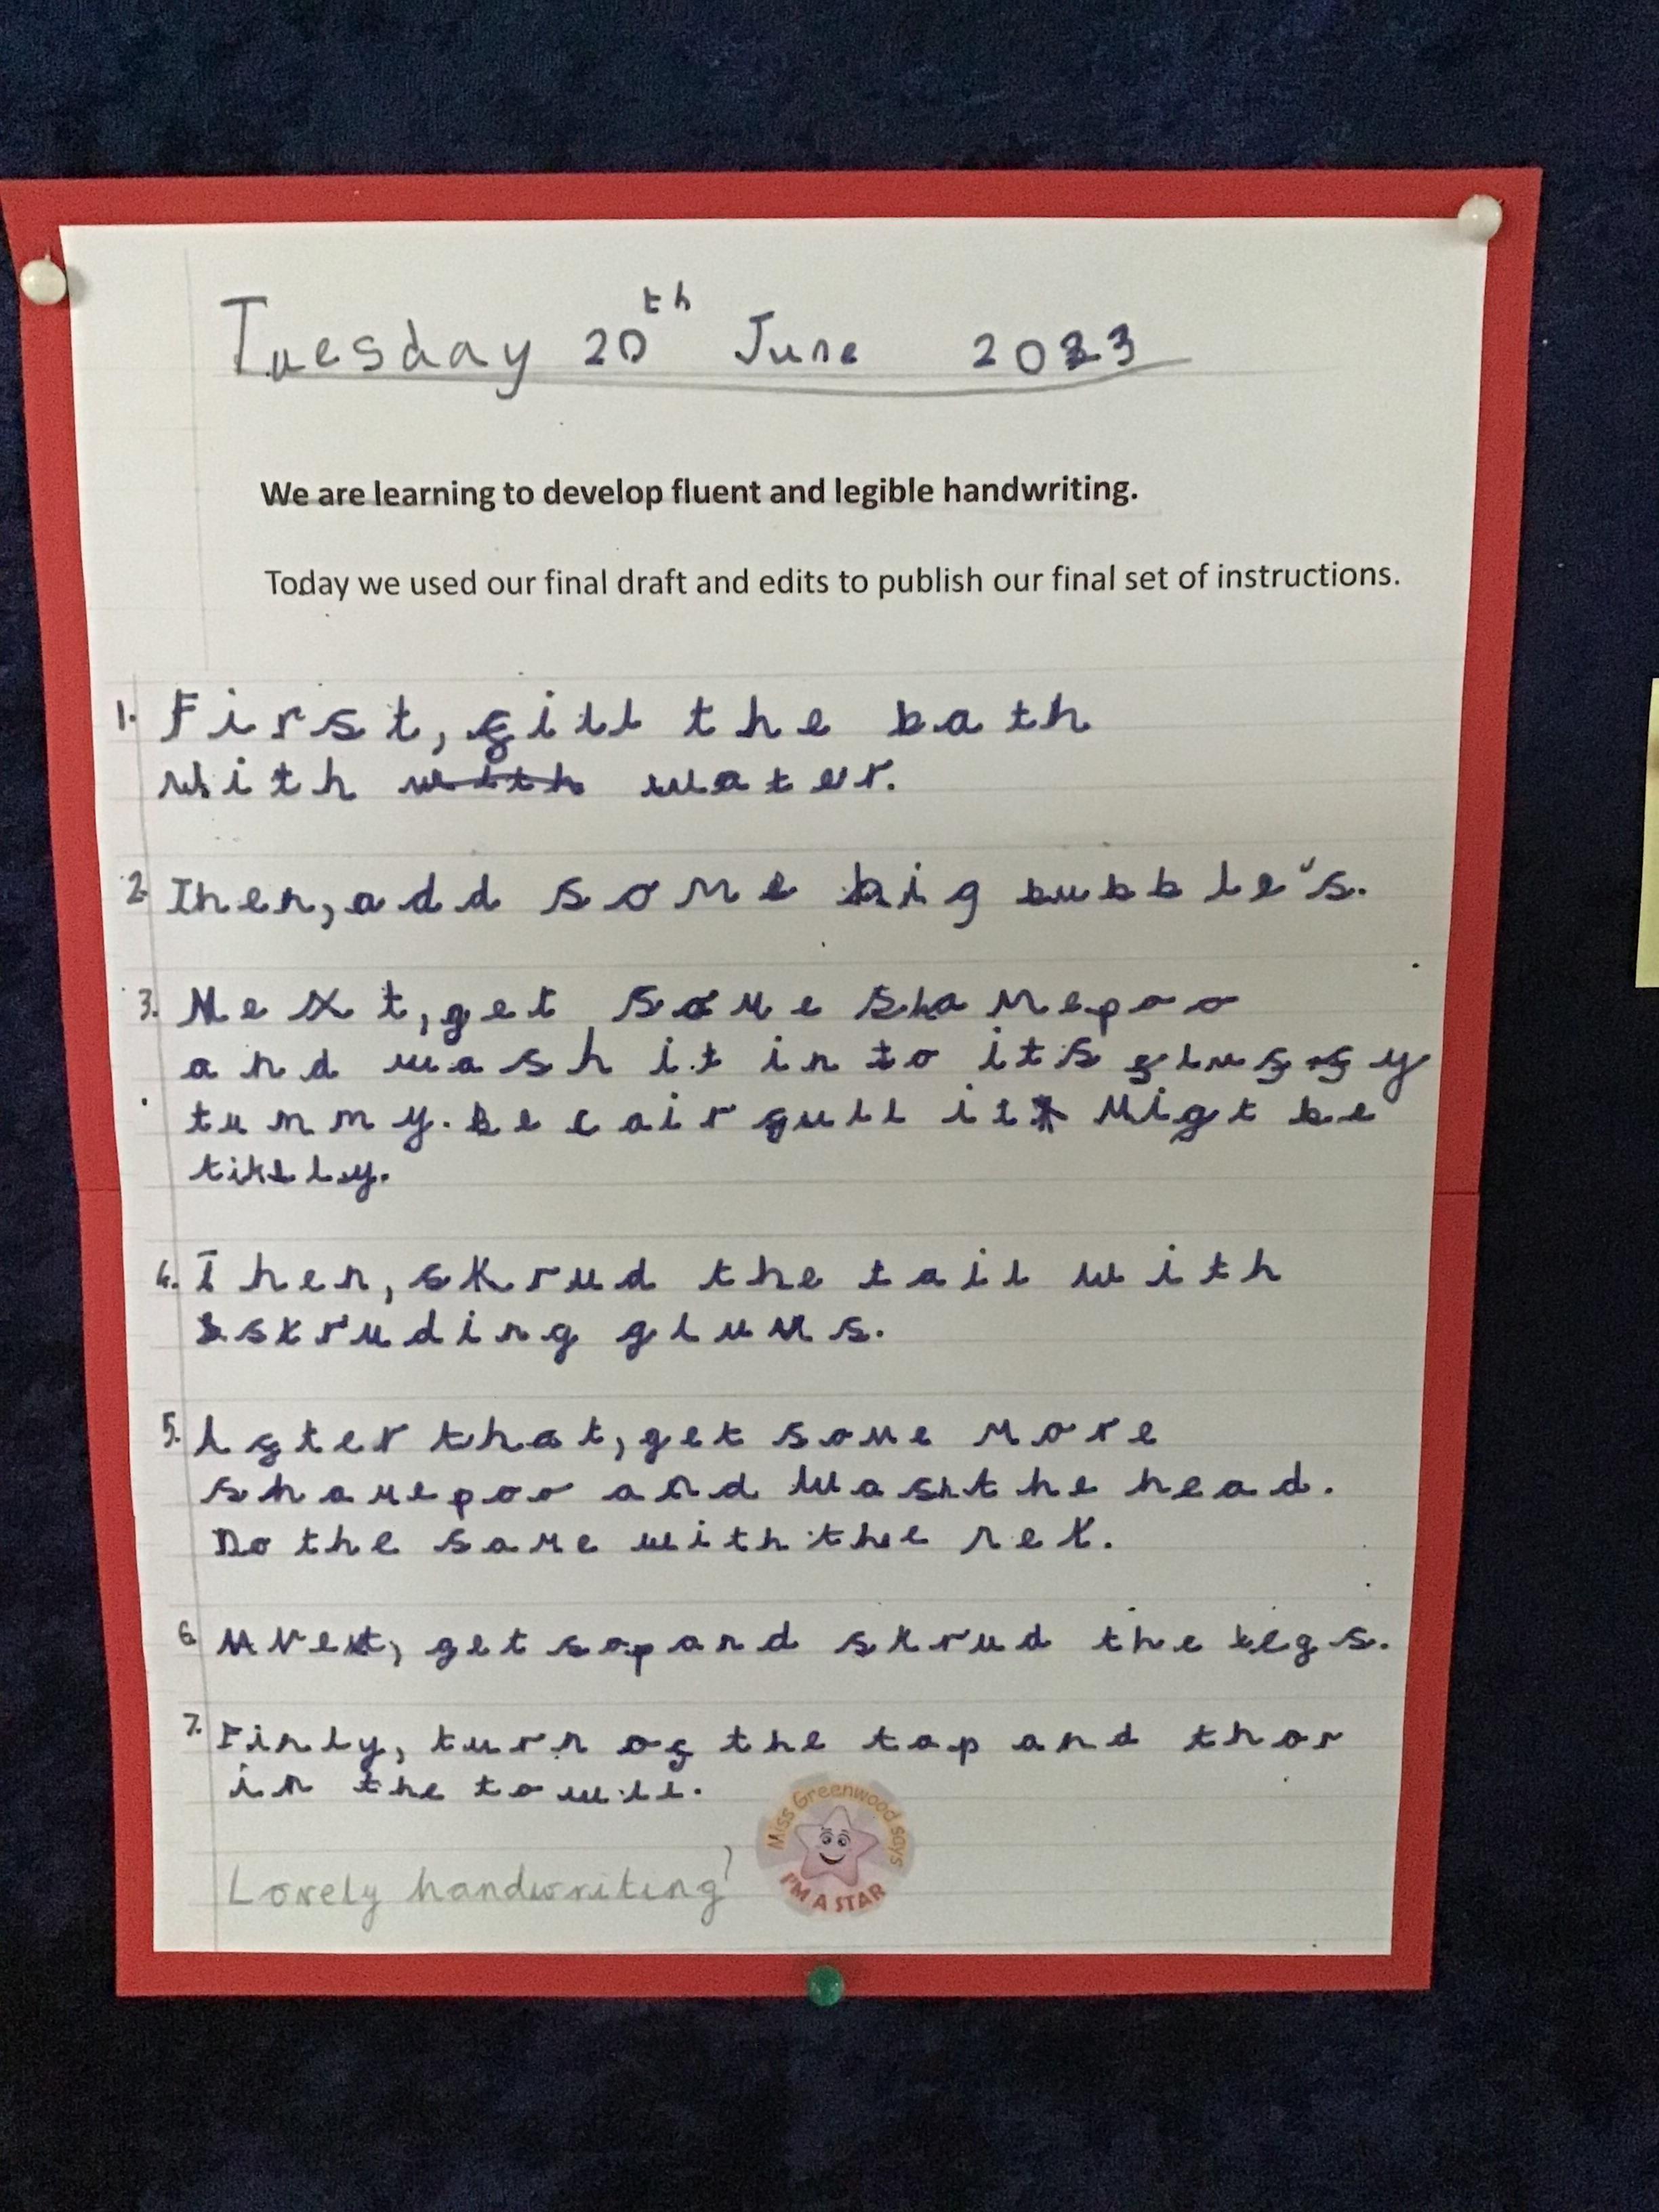 Tuesday 20th June 2023
We are learning to develop fluent and legible handwriting.
Today we used our final draft and edits to publish our final set of instructions.
1. First, fill the bath
with with water.
2. Then, add some big bubble's.
3. Next, get some shamepoo
and wash it in to its fluffy
tummy. be cairfull it might be
tikly.
4. Then, skrud the tail with
skruding glums.
5. After that, get some more
shamepoo and wash the head.
Do the same with the nek.
6. Next, get sop and skrud the legs.
7. Finly, turn of the tap and thor
in the towill.
Lovely handwriting!
Miss Greenwood says
I'M A STAR